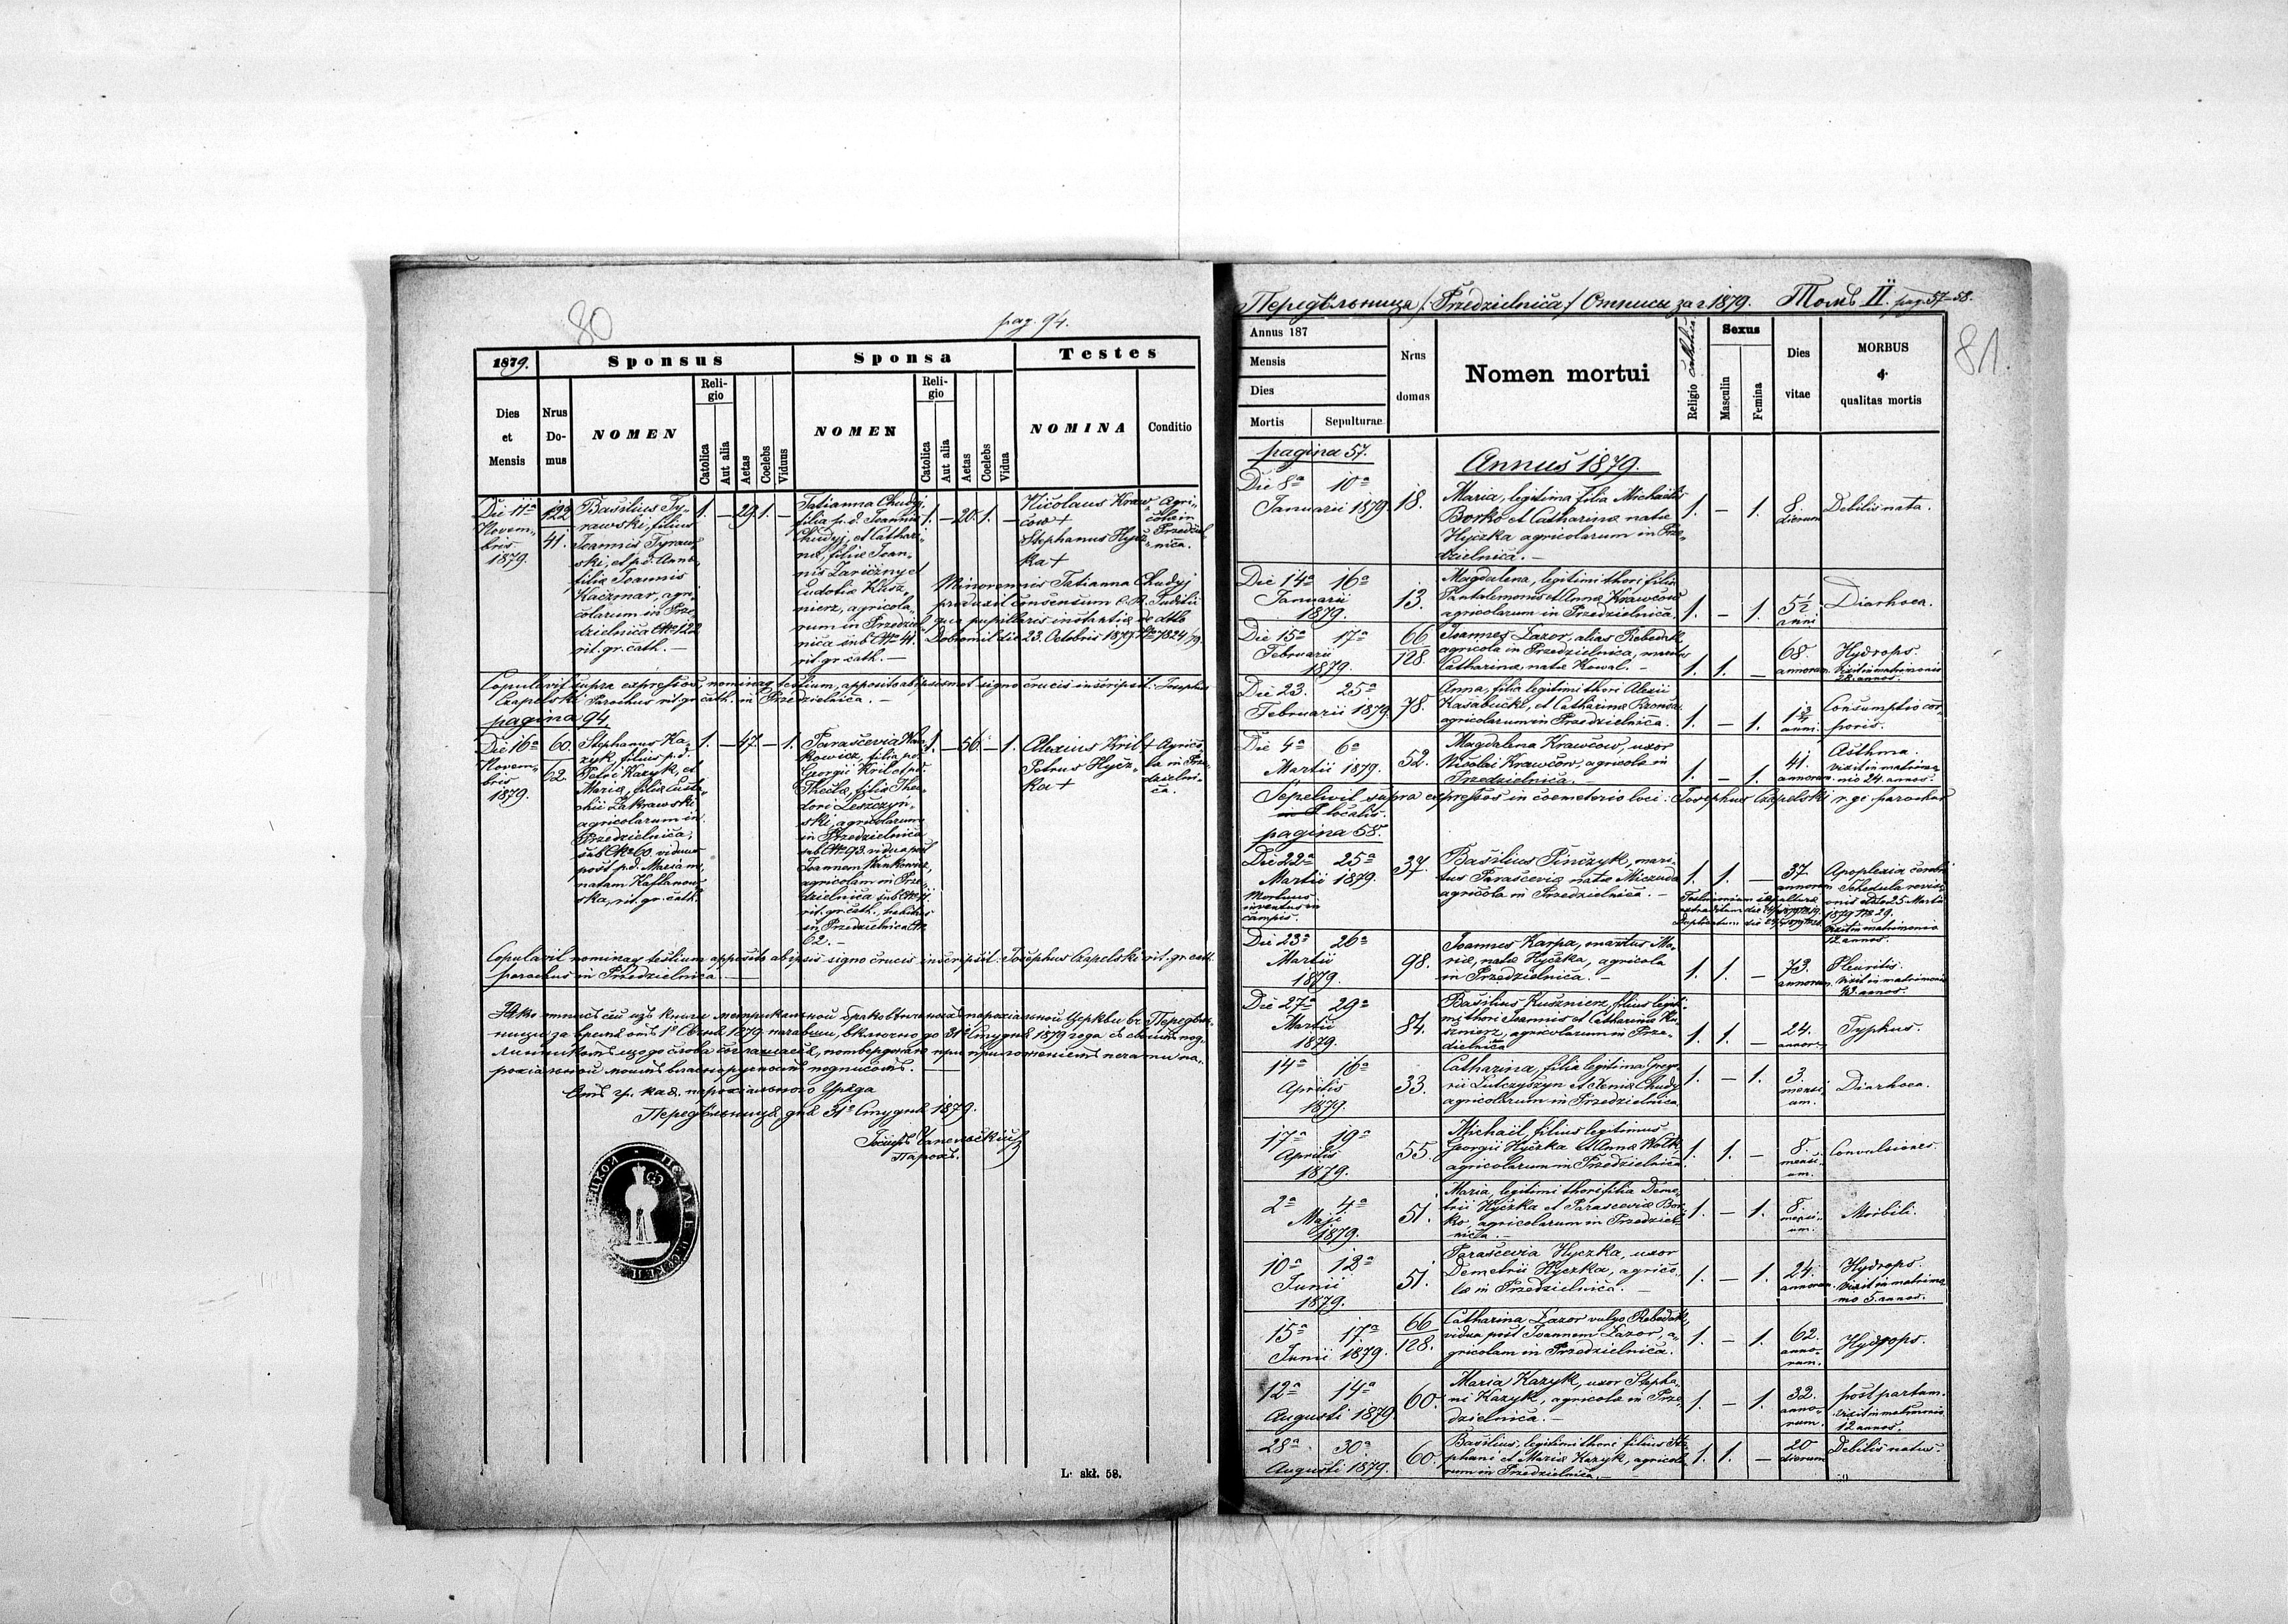 80
pag. 94.
1879. Sponsus Sponsa Testes
Dies et Mensis
Nrus Domus
NOMEN
Religio
Catolica
Aut alia
Aetas
Coelebs
Viduus
NOMEN
Religio
Catolica
Aut alia
Aetas
Coelebs
Vidua
NOMINA
Conditio
Die 11ª
Novem-
bris
1879.
122
41.
Basilius Ty-
rawski, filius
Joannis Tyraw-
ski, et p.d. Anna,
filia Joannis
Kaczmar, agri-
colarum in Prze-
dzielnica Nro 122
rit. gr. cath. —
1. — 29 1. —
Tatianna Chudyj
filia p.d. Joannis
Chudyj, et Cathari-
na, filia Joan-
nis Zariczny et
Eudotia Kusz-
nierz, agricola-
rum in Przedziel-
nica sub Nro 41.
rit. gr. cath. —
1. — 20. 1. —
Nicolaus Kraw-
cow +
Stephanus Hycz-
ka +
Agri-
colæ in
Przedziel-
nica.
Minorennis Tatianna Chudyj
produxit consensum C.R. Judicii
qua pupillaris instantiæ de dtto
Dobromil die 23. Octobris 1879 Nro 7824/79.
Copulavit supra expressos, nominaq testium, apposito ab ipsismet signo crucis inscripsit. Josephus
Czapelski Parochus rit. gr. cath. in Przedzielnica. —
pagina 94.
Die 16ª
Novem-
bris
1879.
60.
62.
Stephanus Ka-
zyk, filius p.d.
Petri Kazyk, et
Maria, filia Eusta-
chii Zakrawski
agricolarum in
Przedzielnica,
sub Nro 60. viduus
post p.d. Mariam,
natam Kaflanow-
ska, rit. gr. cath.
1. — 47. — 1.
Parascevia Wan-
kowicz, filia p.d.
Georgii Kril et p.d.
Thecla, filia Theo-
dori Leszczyń-
ski, agricolarum
in Przedzielnica
sub Nro 93. vidua post
Joannem Wankowicz,
agricolam in Prze-
dzielnica sub Nro
rit. gr. cath., habitans
in Przedzielnica Nro
62. —
1. — 56. — 1.
Alexius Kril +
Petrus Hycz-
ka +
Agrico-
læ in Prze-
dzielni-
ca.
Copulavit nominaq testium apposito ab ipsis signo crucis inscripsit. Josephus Czapelski rit. gr. cath.
parochus in Przedzielnica. —
Отъ гр. каѳ. парохіяльного Уряда
Передѣльница дня 31º Студня 1879.
Іосифъ Чапельскій
Парохъ.
L. skł. 58.
Передѣльница /: Przedzielnica :/ Отписы за г. 1879. Томъ II. pag. 57-58.
81.
Annus 187
Mensis
Dies
Mortis Sepulturae
Nrus domus
Nomen mortui
Religio catholica
Sexus
Masculin
Femina
Dies vitae
MORBUS
&
qualitas mortis
pagina 57. Annus 1879.
Die 8ª 10ª
Januarii 1879
18.
Maria, legitima filia Michaelis
Borko et Catharina natæ
Hyczka agricolarum in Prze-
dzielnica. —
1. — 1.
8
dierum
Debilis nata.
Die 14ª 16ª
Januarii
1879.
13.
Magdalena, legitimi thori filia
Pantalemonis et Anna Krawcow
agricolarum in Przedzielnica.
1. — 1.
5½
anni
Diarhoea.
Die 15ª 17ª
Februarii
1879.
66
128.
Joannes Lazor, alias Rebedak
agricola in Przedzielnica, maritus
Catharina, natæ Kowal. —
1. 1. —
68.
annorum.
Hydrops.
Vixit in matrimonio
28. annos.
Die 23. 25ª
Februarii 1879.
78.
Anna, filia legitimi thori Alexii
Kasabucki, et Catharina
agricolarum in Przedzielnica.
1. — 1.
anni.
Consumptio cor-
poris.
Die 4ª 6ª
Martii 1879.
52.
Magdalena Krawcow, uxor
Nicolai Krawcow, agricolæ in
Przedzielnica. —
1. — 1.
41.
annorum.
Asthma.
Vixit in matrimo-
nio 24. annos.
Sepelivit supra expressos in coemeterio loci. Josephus Czapelski r. gc. parochus
localis.
pagina 58.
Die 22ª 25ª
Martii 1879.
Mortuus
inventus in
campis.
37.
Basilius Pinczyk, mari-
tus Parascevia natæ Miczuda
agricola in Przedzielnica. —
1. 1. —
37
annorum
Apoplexia cerebri
Schedula revisi-
onis dtto 25 Martii
1879 Nro 29.
Vixit in matrimonio
12 annos.
Die 23ª 26ª
Martii
1879.
98.
Joannes Karpa, maritus Ma-
ria, natæ Hyczka, agricola
in Przedzielnica. —
1. 1. —
73.
annorum.
Pleuritis.
Vixit in matrimonio
43. annos.
Die 27ª 29ª
Martii
1879.
84.
Basilius Kusznierz, filius legiti-
mi thori Joannis et Catharina Ku-
sznierz, agricolarum in Prze-
dzielnica
1. 1. —
24.
annor.
Typhus.
14ª 16ª
Aprilis
1879.
33.
Catharina, filia legitima Grego-
rii Lutczyszyn et Xenia Chudyj
agricolarum in Przedzielnica.
1. — 1.
3.
mensi-
um.
Diarhoea.
17ª 19ª
Aprilis
1879.
55.
Michail, filius legitimus
Georgii Hyczka et Anna Wolk,
agricolarum in Przedzielnica.
1. 1. —
8.
mensi-
um.
Convulsiones.
2ª 4ª
Maji
1879.
51.
Maria, legitimi thori filia Deme-
trii Hyczka et Parascevia Bor-
ko, agricolarum in Przedziel-
nica. —
1. — 1.
8.
mensi-
um.
Morbili.
10ª 12ª
Junii
1879.
51.
Parascevia Hyczka, uxor
Demetrii Hyczka, agrico-
læ in Przedzielnica. —
1. — 1.
24.
annorum.
Hydrops.
Vixit in matrimo-
nio 5. annos.
15ª 17ª
Junii 1879.
66
128.
Catharina Lazor vulgo Rebedak,
vidua post Joannem Lazor, a-
gricolam in Przedzielnica.
1. — 1.
62.
anno-
rum.
Hydrops.
12ª 14ª
Augusti 1879
60.
Maria Kazyk, uxor Stepha-
ni Kazyk, agricolæ in Prze-
dzielnica. —
1. — 1.
32.
anno-
rum.
post partum.
Vixit in matrimonio
12 annos.
28ª 30ª
Augusti 1879.
60.
Basilius, legitimi thori filius Ste-
phani et Maria Kazyk, agricola-
rum in Przedzielnica. —
1. 1. —
20
dierum
Debilis natus.